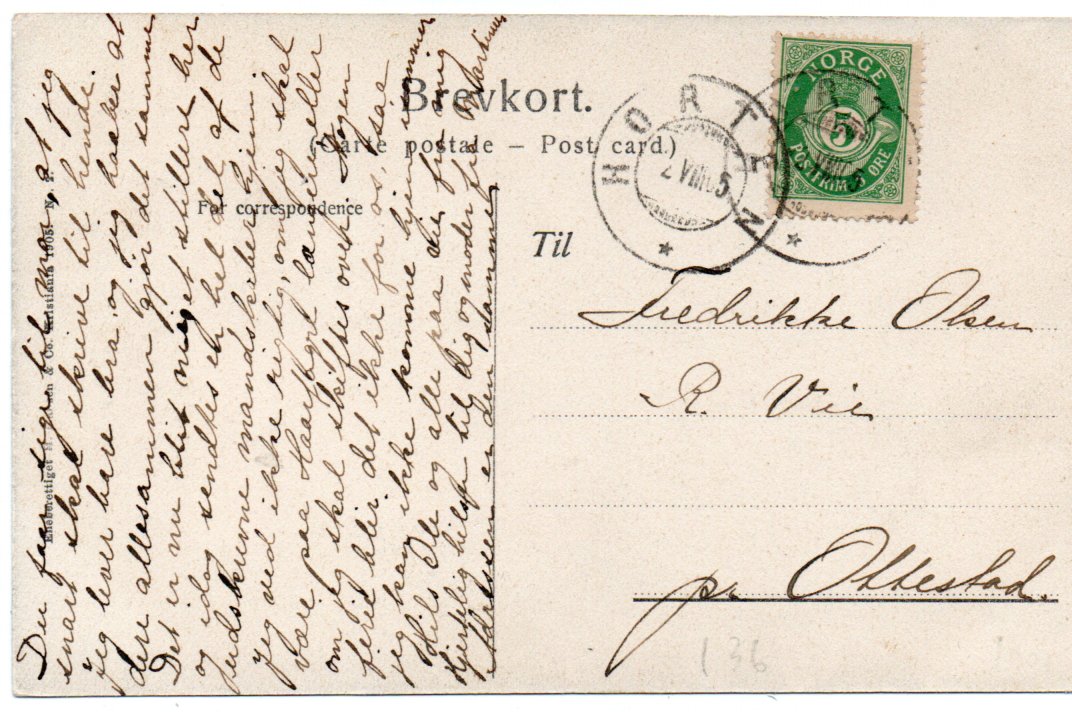 Brevkort.
(Carte postale – Post card.)
For correspondence
Til
NORGE
5
POSTFRIM. 5 ØRE
HORTEN
2 VIII 05
Fredrikke Olsen
R. Vie
pr Ottestad.
136
Eneberettiget & Co. Kristiania 1905. N
Du faar sige til mor, at jeg
snart skal skrive til hende.
Jeg lever bare bra, og jeg haaber at
dere allesammen gjør det samme
Det er nu blit meget stillere her
og idag sendtes en hel del af de
udskrevne mandskaber hjem.
Jeg ved ikke rigtig, om jeg skal
være paa længere eller
om jeg skal skiftes over. Nogen
ferie blir det ikke for os, saa
jeg kan ikke komme hjem i sommer
Hils Ole og alle paa Vie fra mig
Hjertelig hilsen til dig og moder fra
Adressen er den samme